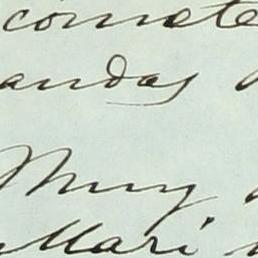 comete
andas
Muy
Mari